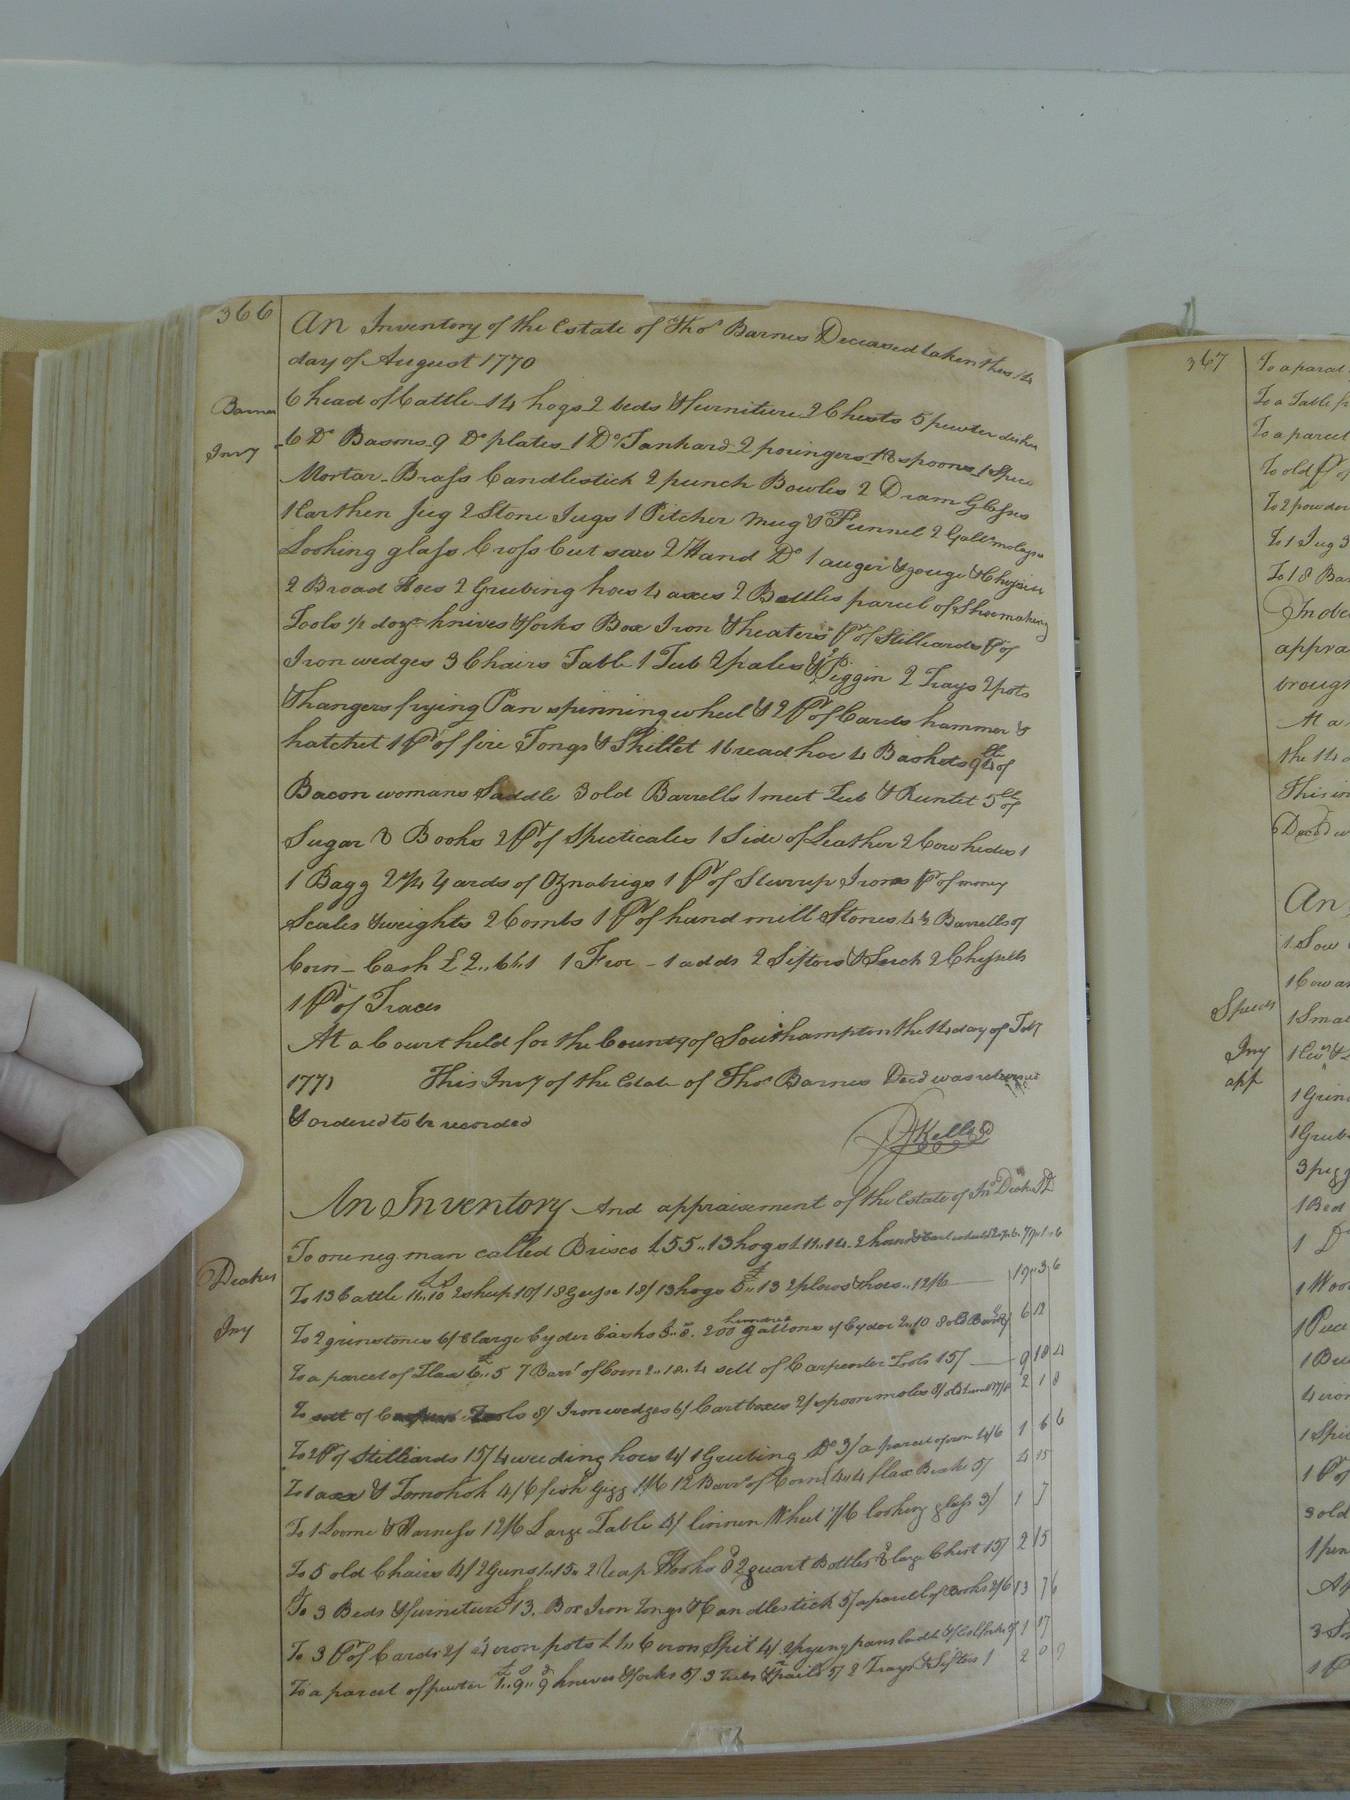 366
An Inventory of the Estate of Thos Barnes Deceased taken this 14
day of August 1770
Barnes
Invy
6 head of Cattle 14 hogs 2 beds & furniture 2 Chests 5 pewter dishes
6 Do Basons 9 Do plates 1 Do Tankard 2 poringers 18 spoons 1 Spice
Mortar Brass Candlestick 2 punch Bowles 2 Dram Glasses
1 Earthen Jug 2 Stone Jugs 1 Pitcher Mug & Funnel 2 Gall molasses
Looking glass Cross Cut saw 2 Hand Do 1 auger & gouge & Chessin
2 Broad Hoes 2 Grubing hoes 4 axes 2 Bottles parcel of Shoemaking
Tools 1/2 doz knives & forks Box Iron & heaters Pr of Stilliards Pr of
Iron wedges 3 Chairs Table 1 Tub 2 pales & Piggin 2 Trays 2 pots
& hangers frying Pan spinning wheel & 2 Pr of Cards hammer &
hatchet 1 Pr of fire Tongs & Skillet 1 broad hoe 4 Baskets 94 lb of
Bacon womans Saddle 3 old Barrells 1 meet Tub & Runtet 5 lb of
Sugar 3 Books 2 Pr of Specticales 1 Side of Leather 2 Cow hides 1
1 Bagg 2 3/4 Yards of Oznabrigs 1 Pr of Sturrup Irons Pr of money
Scales & weights 2 Combs 1 Pr of hand mill Stones 4 1/2 Barrells of
Corn - Cash £ 2..6.1 1 Froe - 1 adds 2 Sifters & Serch 2 Chessells
1 Pr of Traces
At a Court held for the County of Southampton the 14 day of Feby
1771 This Invy of the Estate of Thos Barnes Decd was returned
& ordered to be recorded
R Kello
An Inventory And appraisement of the Estate of Jno Deakes Dd
To one neg man called Brisco £55..13 hogs £11..14. 2
Deakes
Invy
To 13 Cattle 11..10 2 sheep 10/ 18 Geese 18/ 13 hogs 5..13 2 plows & hoes..12/6 19..3 6
To 2 grinstones 6/ 8 large Cyder Casks 3..8. 200 hundred gallons of Cyder 2..10 8 old 6 12
To a parcel of Flax 6..5 7 Barrs of Corn 2..18..4 sett of Carpenter Tools 15/ 9 18 4
To sett of Coopers Tools 8/ Iron wedges 6/ Cart boxes 2/ spoon moles 8/ 2 1 8
To 2 Pr of Stilliards 15/ 4 weeding hoes 4/ 1 Grubing Do 3/ a parcel of iron 4/6 1 6 6
To 1 axe & Tomohok 4/6 fish Gigg 1/6 12 Barrs of Corn 4..4 flax Brake 5/ 4 15
To 1 Loome & Harness 12/6 Large Table 4/ linnen Wheel 7/6 looking glass 3/ 1 7
To 5 old Chairs 4/ 2 Guns 1..15.. 2 reap Hooks & 2 quart Bottles & large Chest 15/ 2 15
To 3 Beds & furniture £13. Box Iron Tongs & Candlestick 5/ a parcell of Books 2/6 13 7 6
To 3 Pr of Cards 2/ 4 iron pots £1.. 6 iron Spit 4/ 2 frying pans 1 17
To a parcel of pewter 1..9..9 knives & forks 5/ 3 Tubs & pails 5/ 2 Trays & Sifters 1 2 0 9
367
To a parcel
To a Table
To a parcel
To old Pr of
To 2 powder
To 1 Jug 3
To 18 Bar
In obe
appra
brough
At a
the 14 d
This in
Decd w
An
1 Sow
1 Cow an
Speeds
Invy
app
1 Smal
1 Grin
1 Grub
3 pigg
1 Bed
1 D
1 Woo
1 Piec
1 Be
4 iron
1 Spi
1 Pr of
3 old